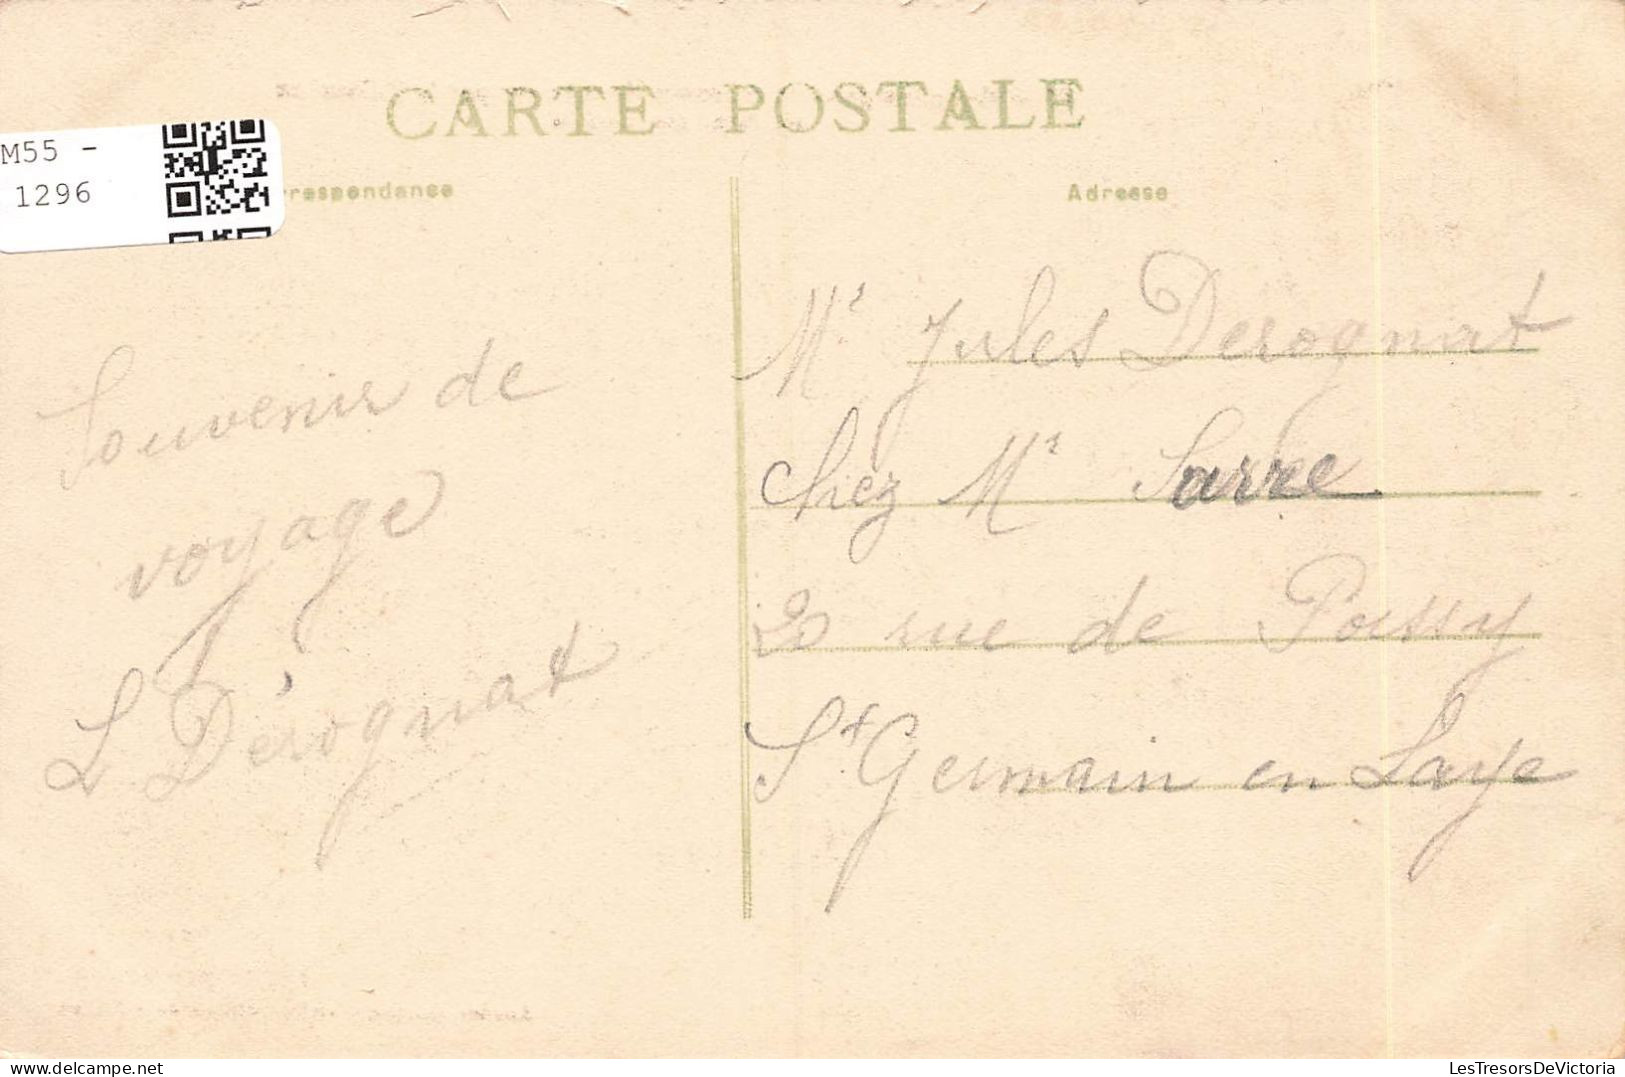 CARTE POSTALE
M55 -
1296
rrespondance
Adresse
Souvenir de
voyage
L Dérognat
Mr Jules Derognat
chez Mr Sarre
20 rue de Poissy
St Germain en Laye
LesTresorsDeVictoria